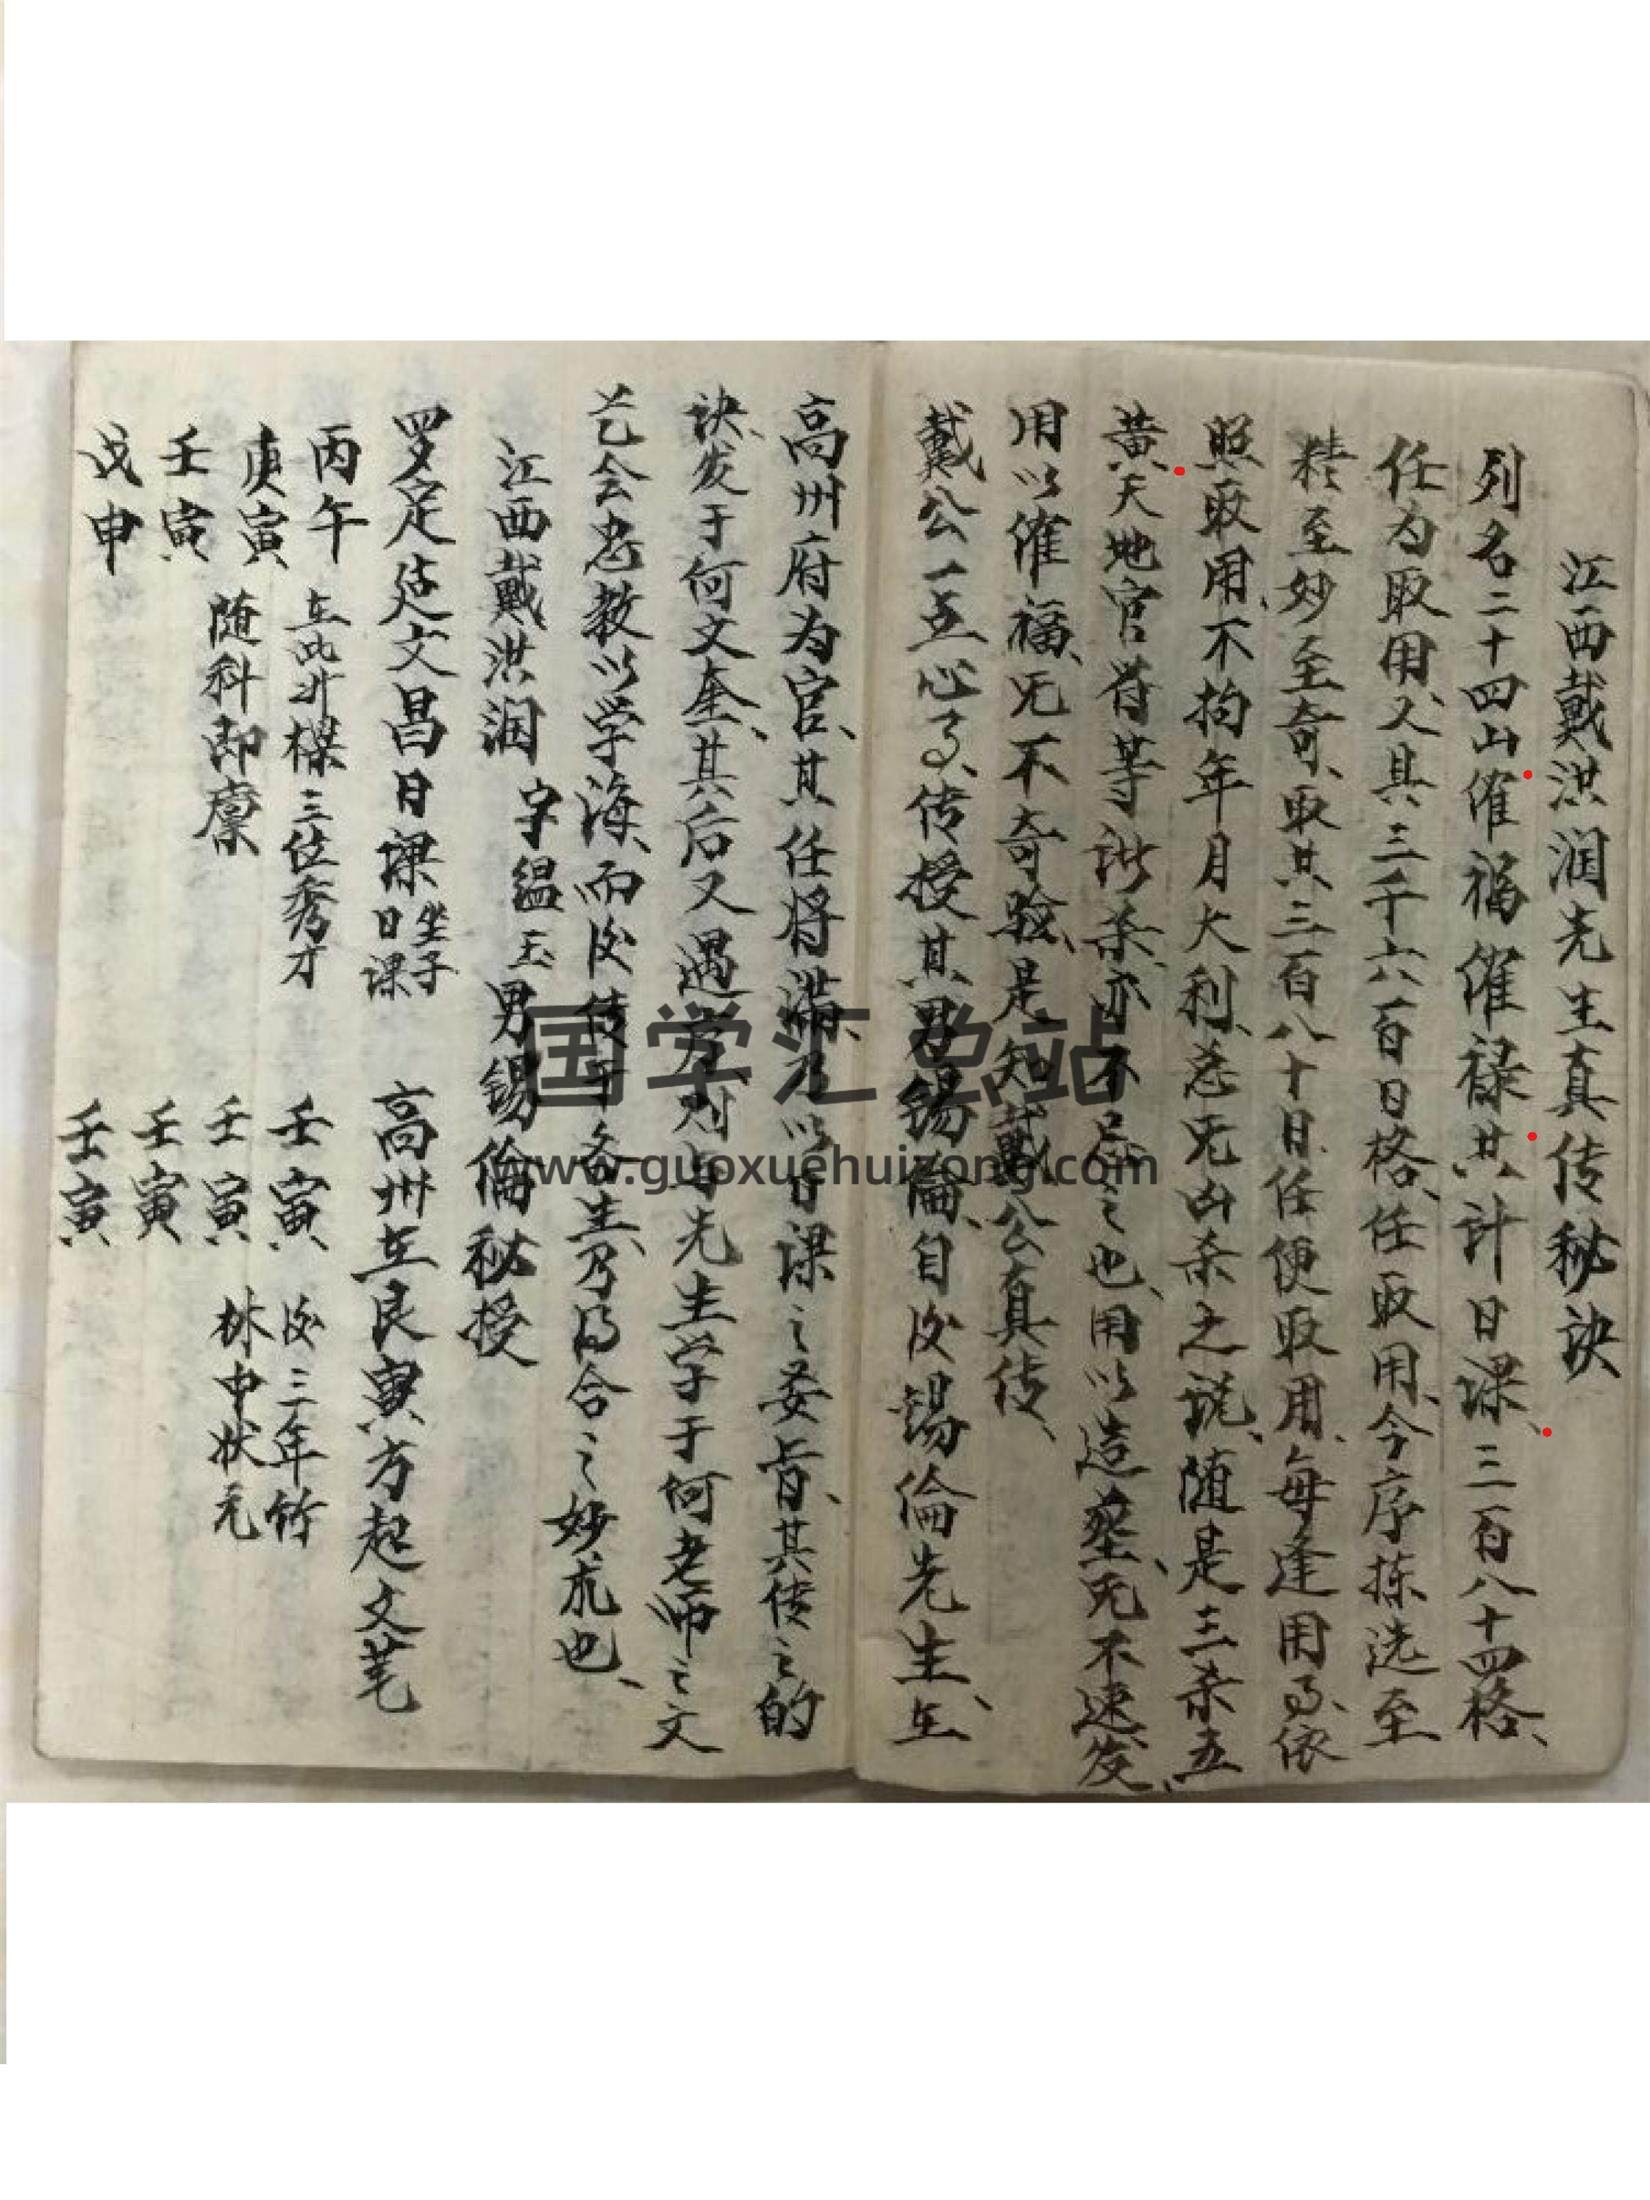 江西戴洪润先生真传秘诀
列名二十四山催福催禄共计日课、三百八十四格、
任为取用、又具三千六百日格、任取用、今序拣选至
精至妙至奇、取其三百八十日、任便取用、每逢用了、依
照取用、不拘年月大利、悉无凶杀之说、随是三杀五
黄天地官符等诸杀、亦不忌之也、用以造葬、无不速发、
用以催福、无不奇验、是知戴公真传、
戴公一点心了、传授其男锡倫、自后锡倫先生、在
高州府为官、其任将满、乃以日课之妾肯、其传之的
诀、发于何文奎、其后又遇 则与先生学于何老师之文
艺会悉教以学海、而后传于各生、乃得合之妙术也、
江西戴洪润 字縕玉 男锡倫秘授
罗定建文昌日课 坐子日课
丙午 在此升樑三位秀才
庚寅 随科即廪
壬寅
戊申
高州在艮寅方起文笔
壬寅 后三年竹
壬寅 林中状元
壬寅
壬寅
国学汇总站
www.guoxuehuizong.com